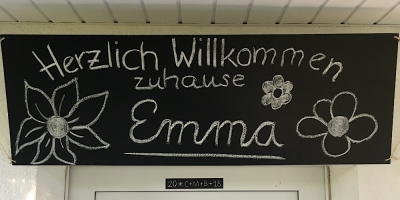 Herzlich Willkommen
zuhause
Emma
20*C+M+B+18